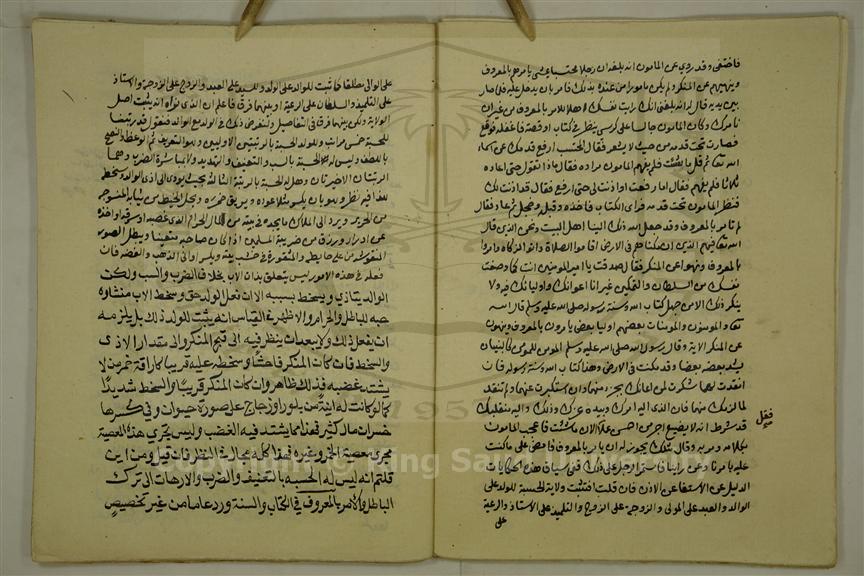 فاختفى وقد روي عن المامون انه بلغه ان رجلا محتسبا يمشي يامرهم بالمعروف
وينهيهم عن المنكر ولم يكن مامورا من عنده بذلك فامر بان يدخل عليه فلما صار
بين يديه قال له انه بلغني انك رايت نفسك اهلا للامر بالمعروف من غير ان
نامرك وكان المامون جالسا على كرسي ينظر في كتاب او قصة فاغفله فوقع
فصارت تحت قدمه من حيث لا يشعر فقال المحتسب ارفع قدمك عن اسماء
الله تعالى ثم قل ما شئت فلم يفهم المامون مراده فقال ماذا تقول حتى اعاده
ثلاثا فلم يفهم فقال اما رفعت او اذنت لي حتى ارفع فقال قد اذنت لك
فنظر المامون تحت قدمه فراى الكتاب فاخذه وقبله وخجل ثم عاد وقال
لم تامر بالمعروف وقد جعل الله ذلك الينا اهل البيت ونحن الذي قال
الله تعالى فيهم الذين ان مكناهم في الارض اقاموا الصلاة واتوا الزكاة وامروا
بالمعروف ونهوا عن المنكر فقال صدقت يا امير المومنين انت كما وصفت
نفسك من السلطان والتمكين غير انا اعوانك واوليائك فيه ولا
ينكر ذلك الا من جهل كتاب الله وسنة رسوله صلى الله عليه وسلم قال الله
تعالى والمومنون والمومنات بعضهم اوليا بعض يامرون بالمعروف وينهون
عن المنكر الاية وقال رسول الله صلى الله عليه وسلم المومن للمومن كالبنيان
يشد بعضه بعضا وقد مكنت في الارض وهذا كتاب الله وسنة رسوله فان
انقدت لهما شكرت لمن اعانك بحرمتهما وان استكبرت عنهما ولم تنقد
لما لزمك منهما فان الذي اليه امرك وبيده عزك وذلك واليه منقلبك
قد شرط انه لا يضيع اجر من احسن عملا الان ما شئت فاعجب المامون
فقل
بكلامه وسر به وقال مثلك يجوز له ان يامر بالمعروف فامض على ما كنت
عليه بامرنا وعن راينا فاستمر الرجل على ذلك ففي سياق هذه الحكايات
الدليل على الاستغنا عن الاذن فان قلت افتثبت ولاية الحسبة للولد على
الوالد والعبد على المولى والزوجة على الزوج والتلميذ على الاستاذ والرعية
على
على الوالي مطلقا كما يثبت للوالد على الولد وللسيد على العبد والزوج على الزوجة والاستاذ
على التلميذ والسلطان على الرعية او بينهما فرق فاعلم ان الذي نراه انه يثبت اصل
الولاية ولكن بينهما فرق في التفاصيل ولنفرض ذلك في الولد مع الوالد فنقول قد رتبنا
للحسبة خمس مراتب وللولد الحسبة بالرتبتين الاوليين وهو التعريف ثم الوعظ والنصح
باللطف وليس له الحسبة بالسب والتعنيف والتهديد ولا بمباشرة الضرب وهما
الرتبتان الاخيرتان وهل له الحسبة بالرتبة الثالثة بحيث يودي الى اذى الوالد وسخطه
هذا فيه نظر وهو بان يكسر مثلا عوده ويريق خمره ويحل الخيط من ثيابه المنسوجه
من الحرير ويرد الى الملاك ما يجده في بيته من المال الحرام الذي غصبه او سرقه او اخذه
عن ادرار ورزق من ضريبة المسلمين اذا كان صاحبه معينا ويبطل الصور
المنقوشة من على حايطه والمنقورة في خشب بيته ويكسر اواني الذهب والفضه فان
فعله في هذه الامور ليس يتعلق بذات الاب بخلاف الضرب والسب ولكن
الوالد يتاذى ويسخط بسببه الا ان فعل الولد حق وسخط الاب منشاوه
حبه للباطل والحرام والاظهر في القياس انه يثبت للولد ذلك بل يلزمه
ان يفعل ذلك ولا يبعد ان ينظر فيه الى قبح المنكر والى مقدار الاذى
والسخط فان كان المنكر فاحشا وسخطه عليه قريبا كاراقة خمر من لا
يشتد غضبه فذلك ظاهر وان كان المنكر قريبا والسخط شديدا
كما لو كانت له انية من بلور او زجاج على صورة حيوان وفي كسرها
خسران مال كثير فهذا مما يشتد فيه الغضب وليس تجري هذه المعصية
مجرى معصية الخمر وغيره فهذا كله مجال النظر فان قيل ومن اين
قلتم انه ليس له الحسبه بالتعنيف والضرب والارهاق الى ترك
الباطل والامر بالمعروف في الكتاب والسنة ورد عاما من غير تخصيص
1957
Copyright © King Saud University